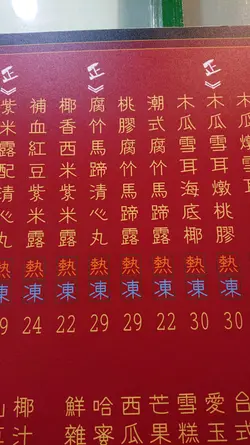 正
木瓜雪耳燉桃膠
熱
凍
30
木瓜雪耳海底椰
熱
凍
30
潮式腐竹馬蹄露
熱
凍
22
桃膠腐竹馬蹄露
熱
凍
29
正
腐竹馬蹄清心丸
熱
凍
29
椰香西米露
熱
凍
22
補血紅豆紫米露
熱
凍
24
正
紫米露配清心丸
熱
凍
9
台式
愛玉
雪糕
芒果
西瓜
哈蜜
鮮雜
椰汁